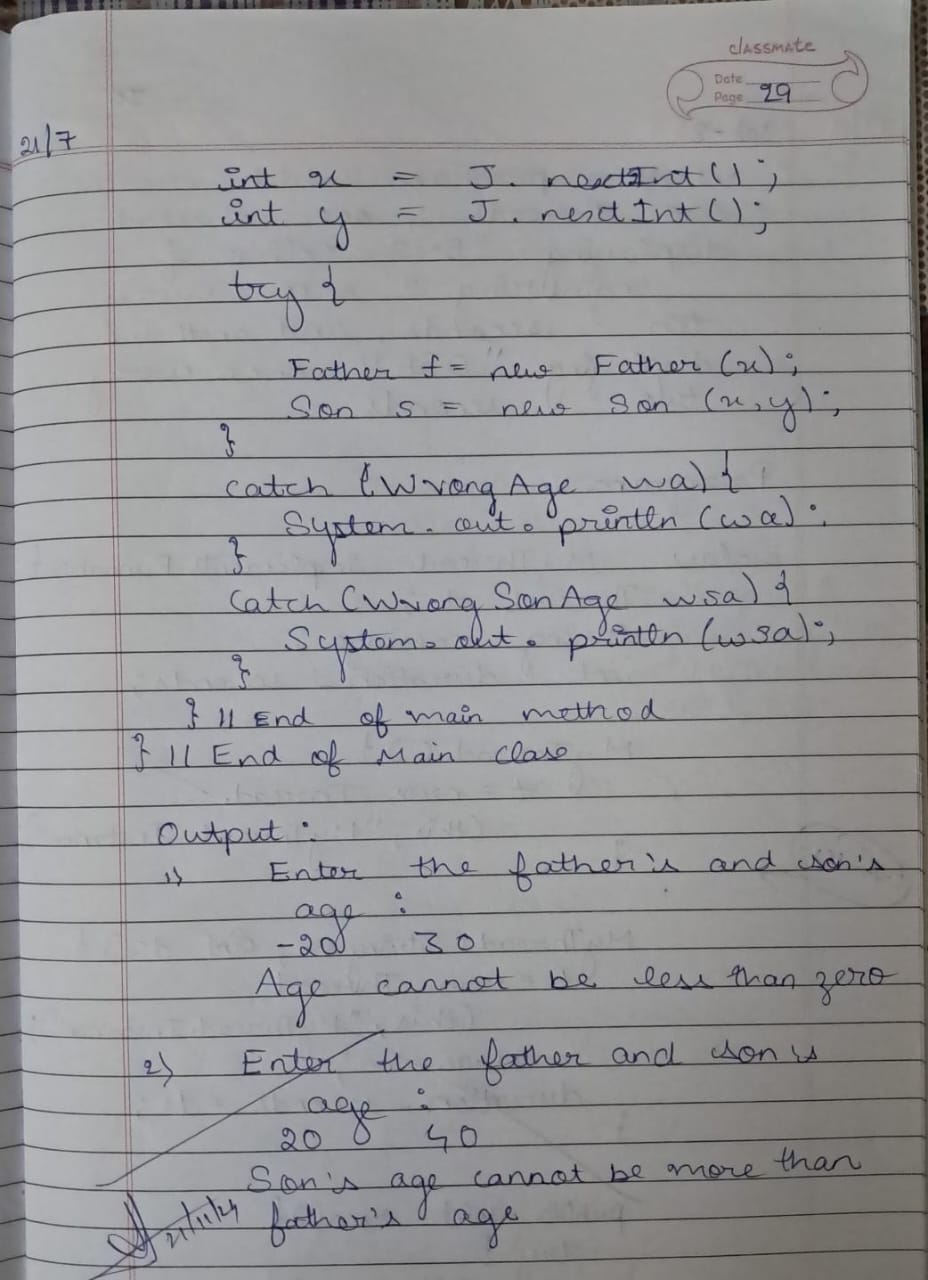 classmate
Date
Page 29
21/7
int x = J. nextInt();
int y = J. nextInt();
try {
Father f = new Father (x);
Son s = new Son (x, y);
}
catch (WrongAge wa) {
System. out. println (wa);
}
catch (WrongSonAge wsa) {
System. out. println (wsa);
}
} // End of main method
} // End of Main Class
Output :
1) Enter the father's and son's
age :
-20 30
Age cannot be less than zero
2) Enter the father and son's
age :
20 40
Son's age cannot be more than
father's age
21/11/24